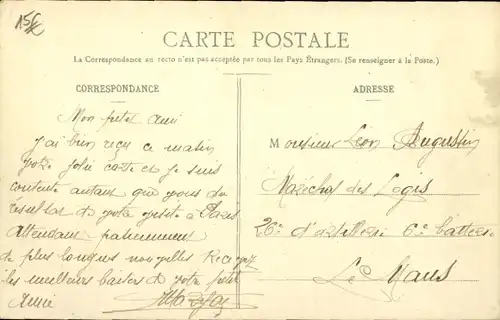 CARTE POSTALE
La Correspondance au recto n'est pas acceptée par tous les Pays Étrangers. (Se renseigner à la Poste.)
CORRESPONDANCE
Mon petit ami
J'ai bien reçu ce matin
votre jolie carte et je suis
contente autant que vous du
résultat de votre visite à Paris
attendant patiemment
de plus longues nouvelles Recevez
les meilleurs baisers de votre petite
Amie
ADRESSE
Monsieur Léon Augustin
Maréchal des Logis
26e d'artillerie 6e batterie
Le Mans